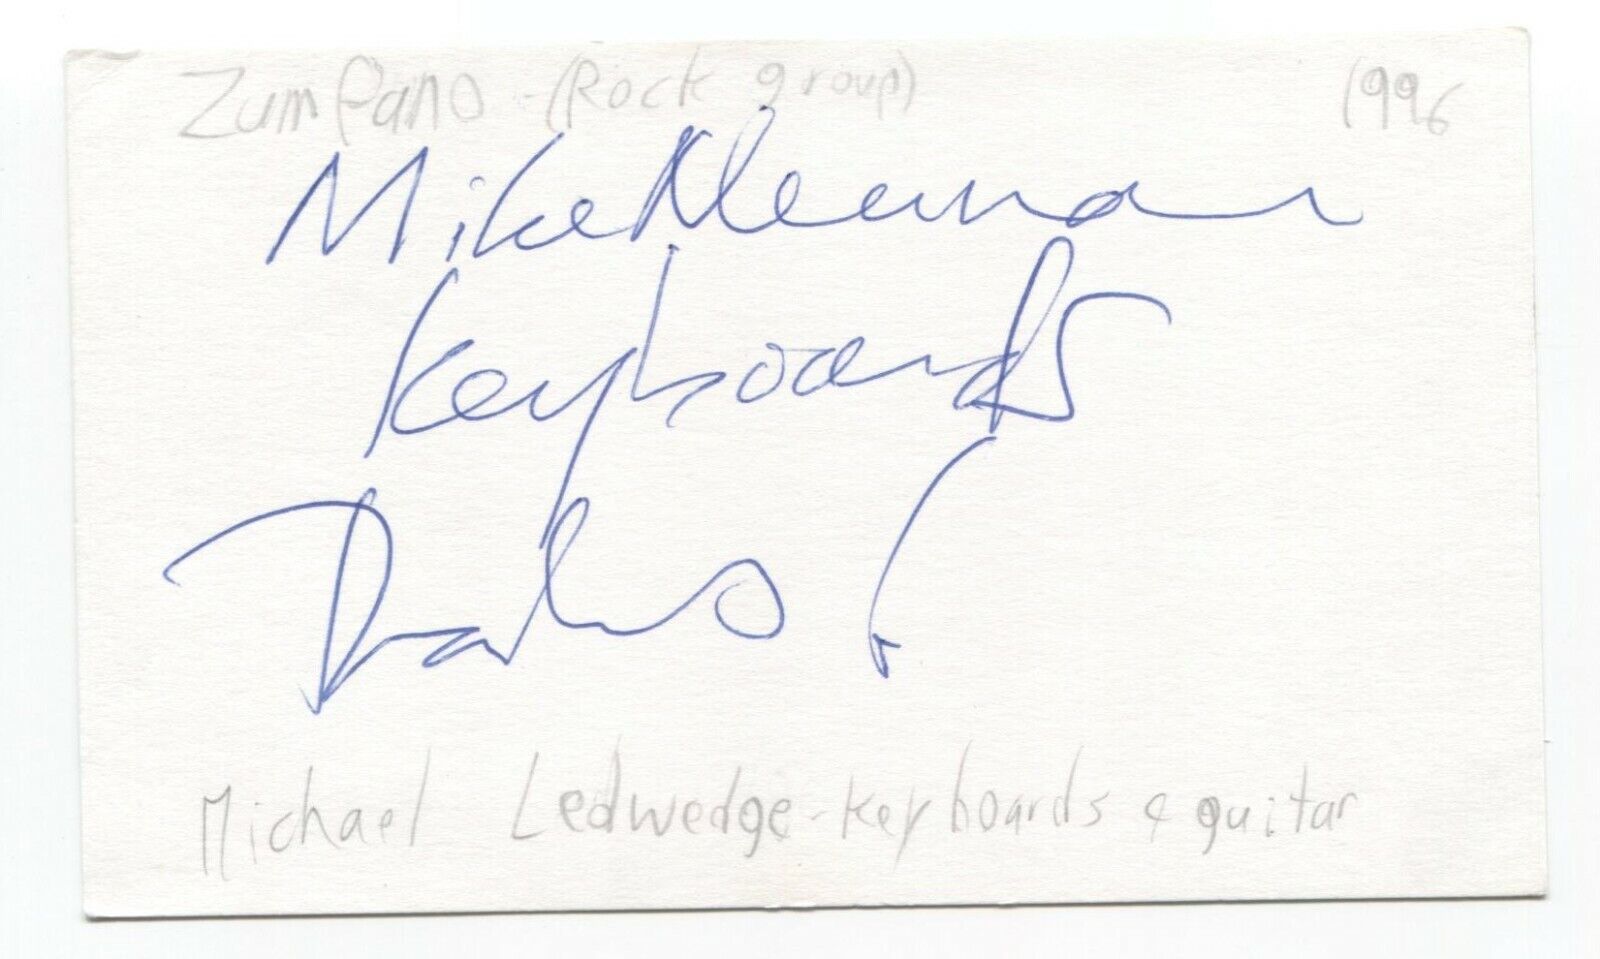 Zumpano - (Rock group) 1996
Mike
Keyboards
Michael Ledwedge - keyboards & guitar